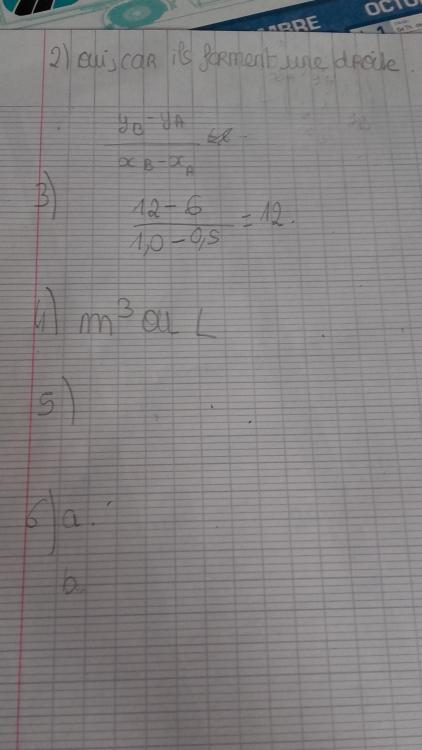 OCTO
MBRE
2) oui, car ils forment une droite.
yB - yA
xB - xA
3)
12 - 6
1,0 - 0,5
= 12.
4) m³ ou L
5)
6) a.
b